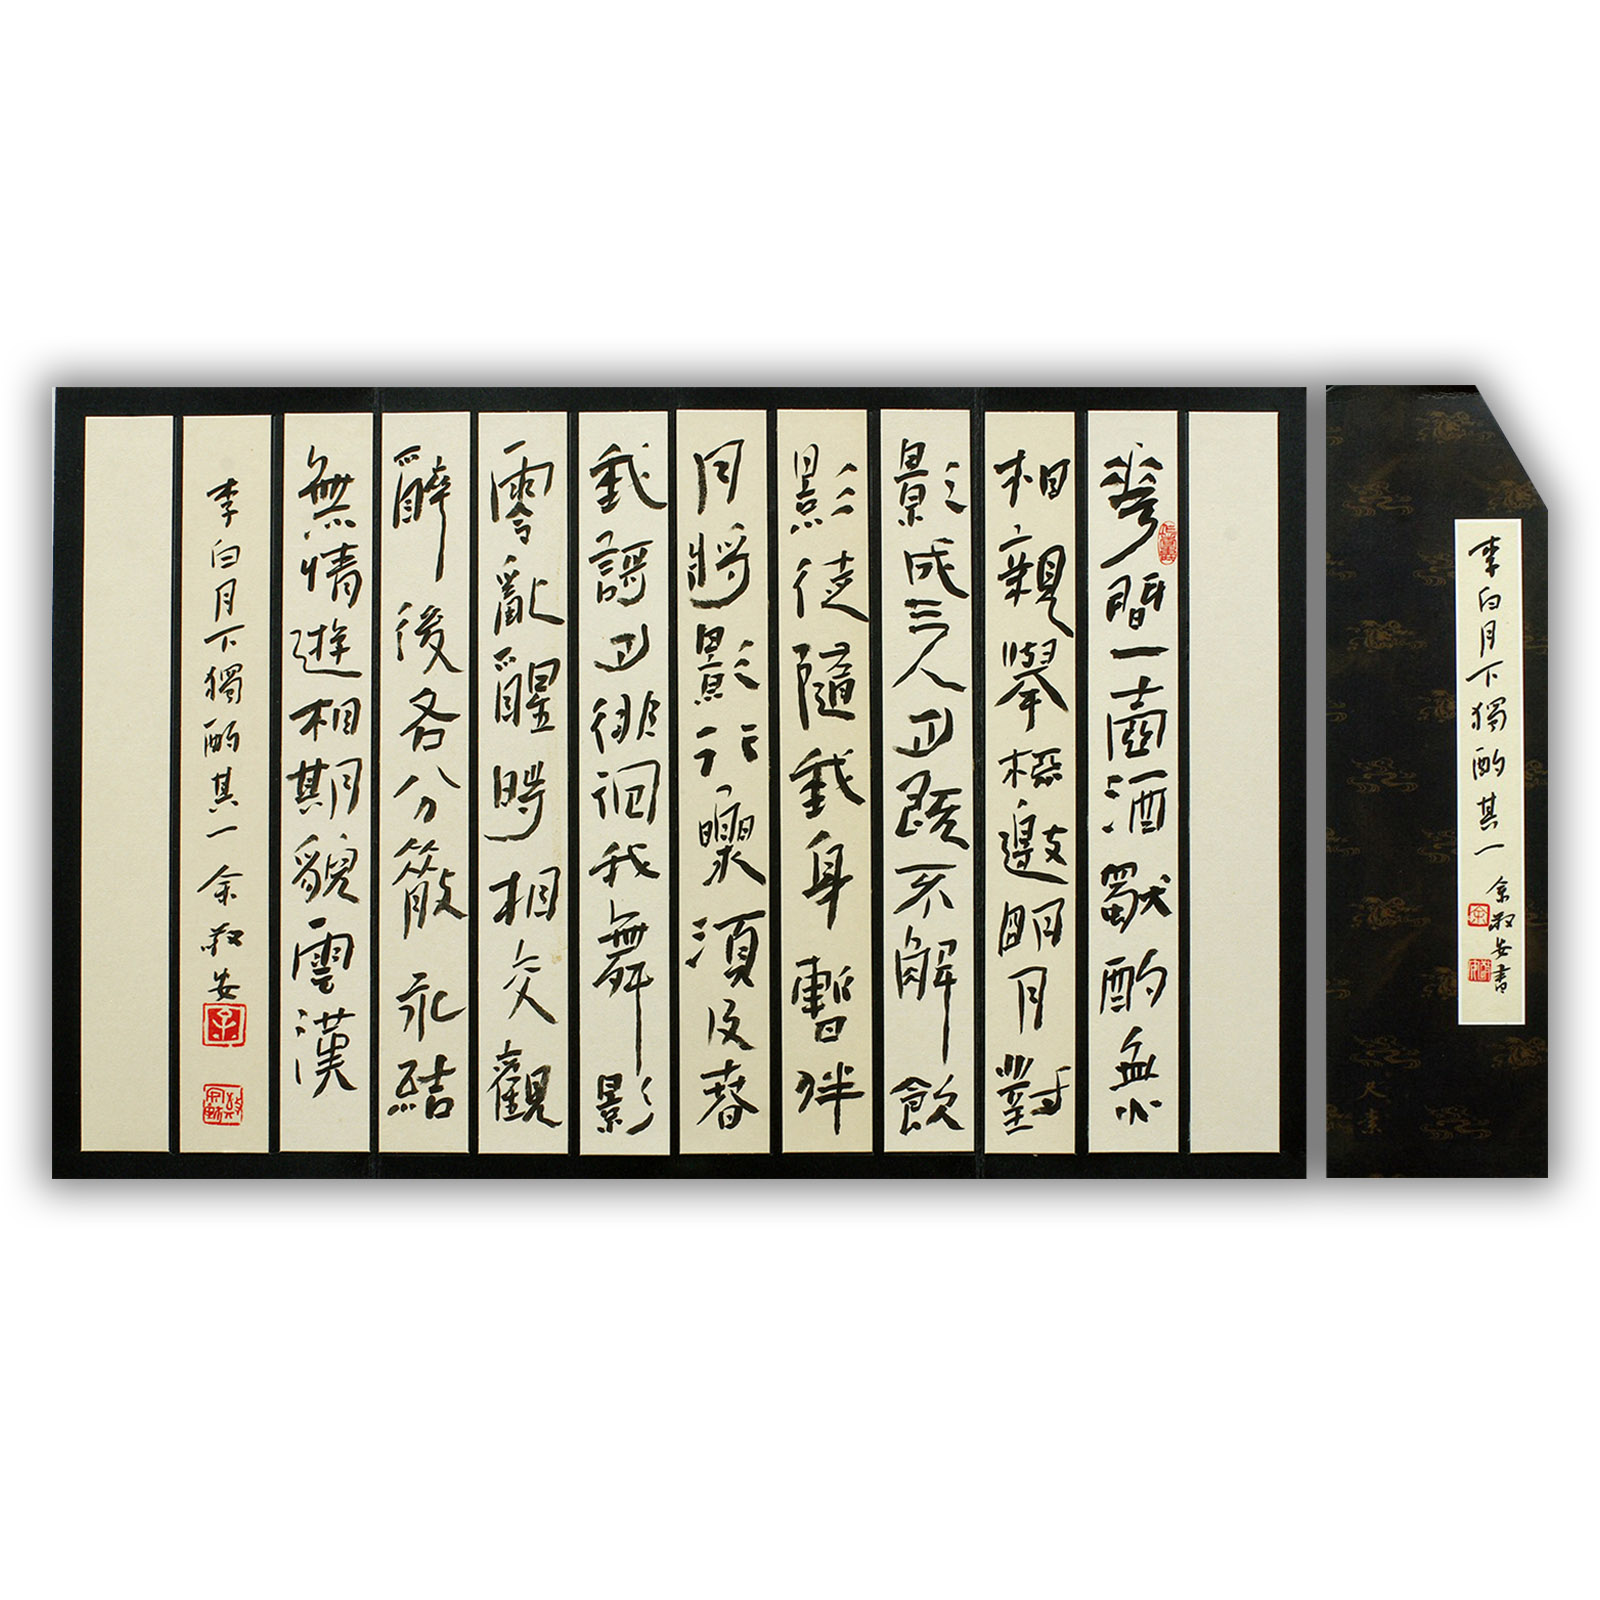 李白月下獨酌其一
余敬安書
花間一壺酒獨酌無
相親舉桮邀明月對
影成三人月既不解飲
影徒隨我身暫伴
月將影行樂須及春
我歌月徘徊我舞影
零亂醒時相交觀
醉後各分散永結
無情遊相期貌雲漢
李白月下獨酌其一 余敬安